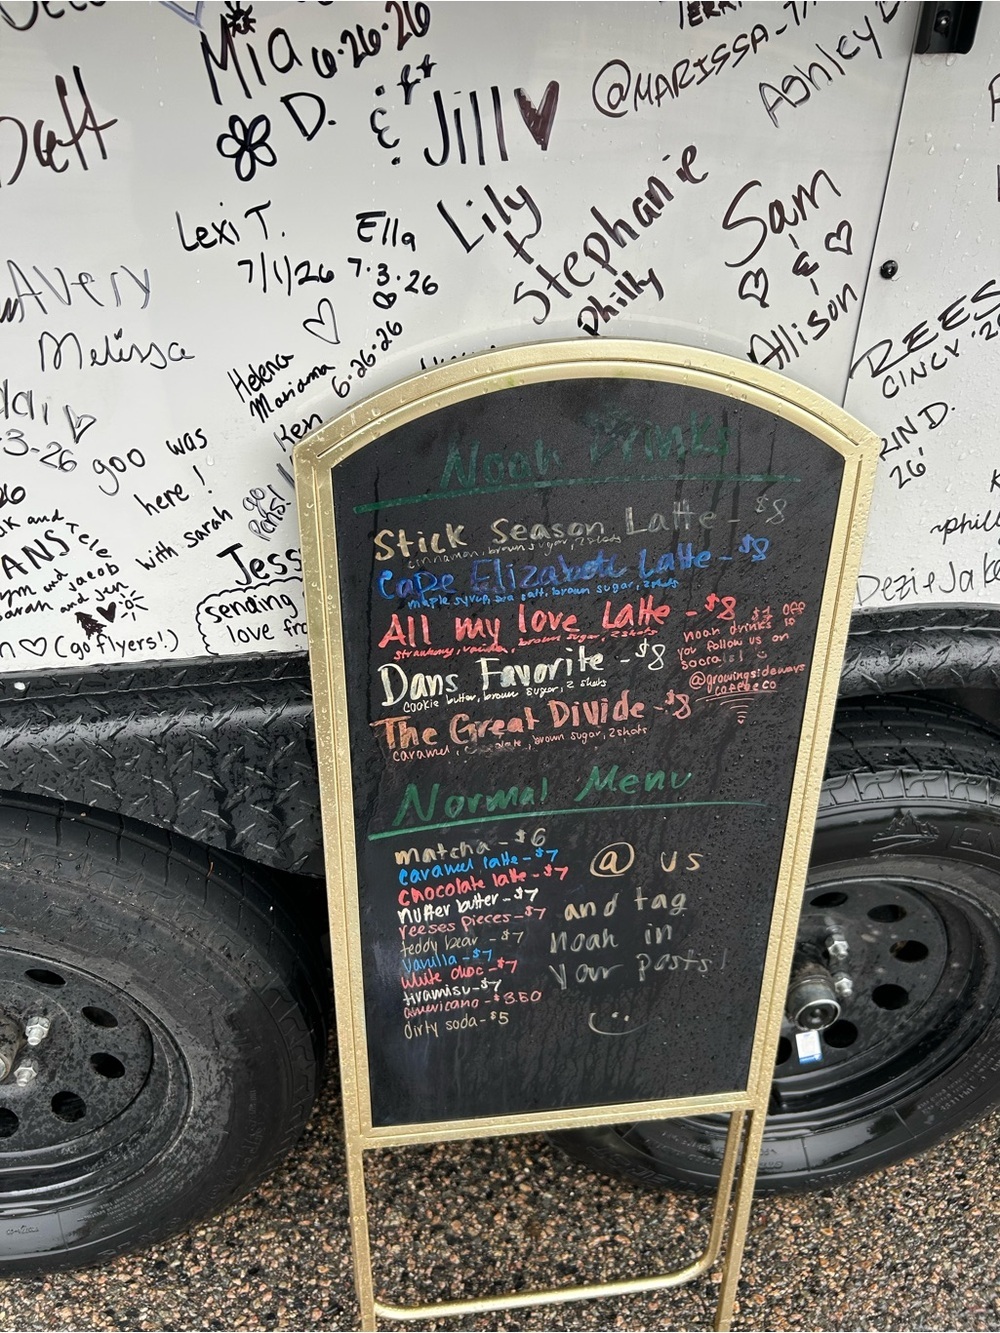 Mia 6·26·26
D.
&
Jill
@MARISSA-7/
Ashley
Daft
Lexi T.
7/1/26
Ella
7·3·26
Lily
+
Stephanie
philly
Sam
&
Allison
Avery
Melissa
Helena
Mariama
6·26·26
Ken
REES
CINCY '2
IND.
26'
3-26
goo was
here!
with sarah
go
Jess
sending
love fro
ANS
Tele
and jacob
sarah and jen
(go flyers!)
~phill
Dezi + Jake
Noah Drinks
Stick Season Latte - $8
cinnamon, brown sugar, 2shots
Cape Elizabeth Latte - $8
maple syrup, sea salt, brown sugar, 2shots
All my love Latte - $8
strawberry, vanilla, brown sugar, 2shots
Dans Favorite - $8
cookie butter, brown sugar, 2 shots
The Great Divide - $8
caramel, chocolate, brown sugar, 2shots
$1 off
noah drinks if
you follow us on
socials!
@growingsideways
coffeeco
Normal Menu
matcha - $6
caramel latte - $7
chocolate latte - $7
nutter butter - $7
reeses pieces - $7
teddy bear - $7
vanilla - $7
white choc - $7
tiramisu - $7
americano - $3.50
dirty soda - $5
@ us
and tag
noah in
your posts!